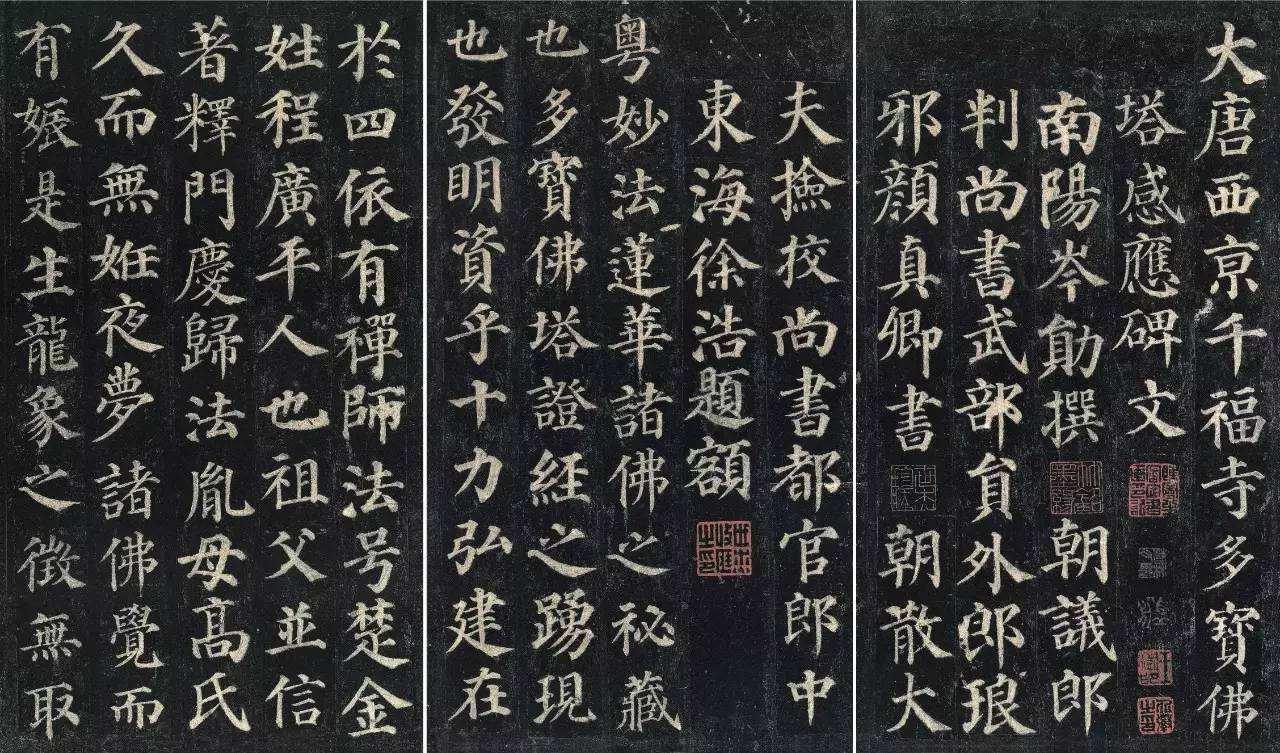 大唐西京千福寺多寶佛
塔感應碑文
南陽岑勛撰 朝議郎
判尚書武部員外郎琅
邪顏真卿書 朝散大
夫撿挍尚書都官郎中
東海徐浩題額
粵妙法蓮華諸佛之祕藏
也多寶佛塔證經之踴現
也發明資乎十力弘建在
於四依有禪師法号楚金
姓程廣平人也祖父並信
著釋門慶歸法胤母高氏
久而無姙夜夢諸佛覺而
有娠是生龍象之徵無取